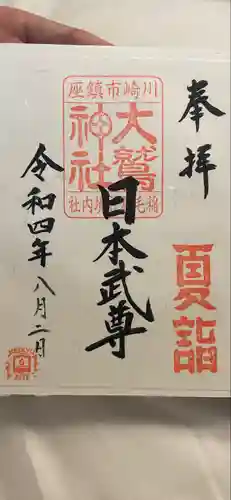 奉拝
夏詣
川崎市鎮座
大鷲神社
稲毛
内社
日本武尊
令和四年八月二日